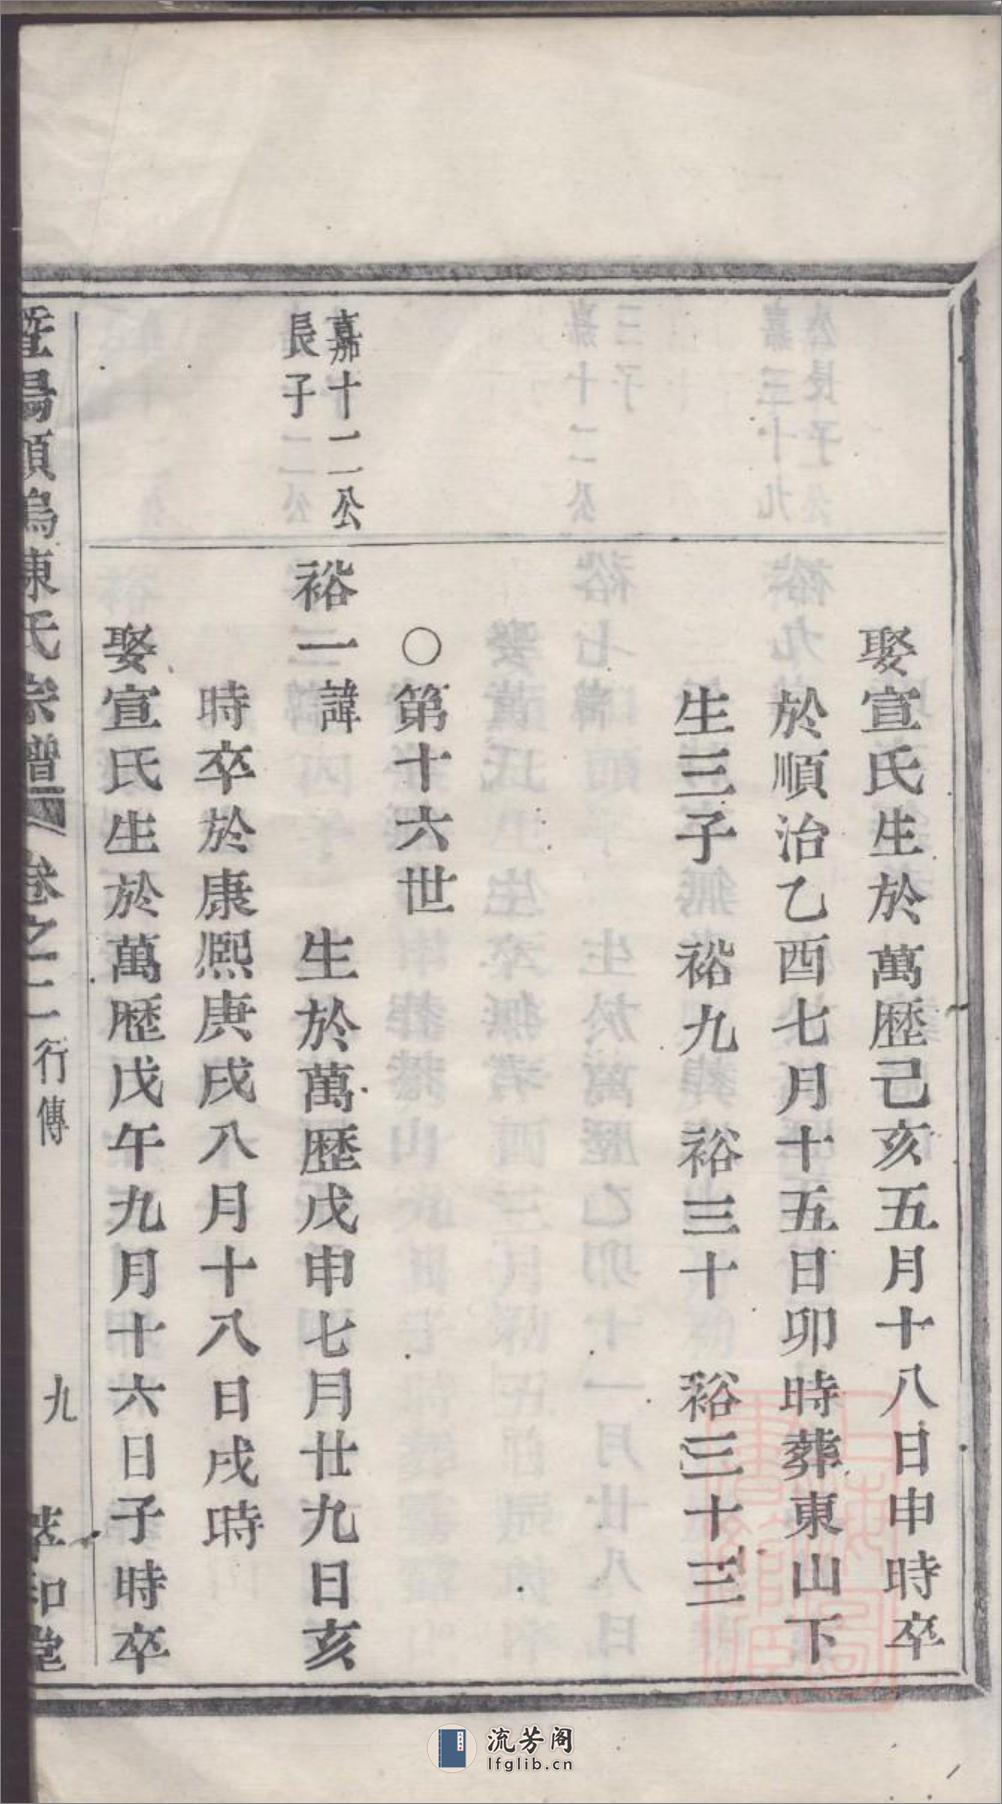 娶宣氏生於萬歷己亥五月十八日申時卒
於順治乙酉七月十五日卯時葬東山下
生三子 裕九 裕三十 裕三十三
○第十六世
嘉十二公
長子
裕一諱 生於萬歷戊申七月廿九日亥
時卒於康熙庚戌八月十八日戌時
娶宣氏生於萬歷戊午九月十六日子時卒
暨陽項塢陳氏宗譜 卷之二 行傳 九 萃和堂
流芳阁
lfglib.cn